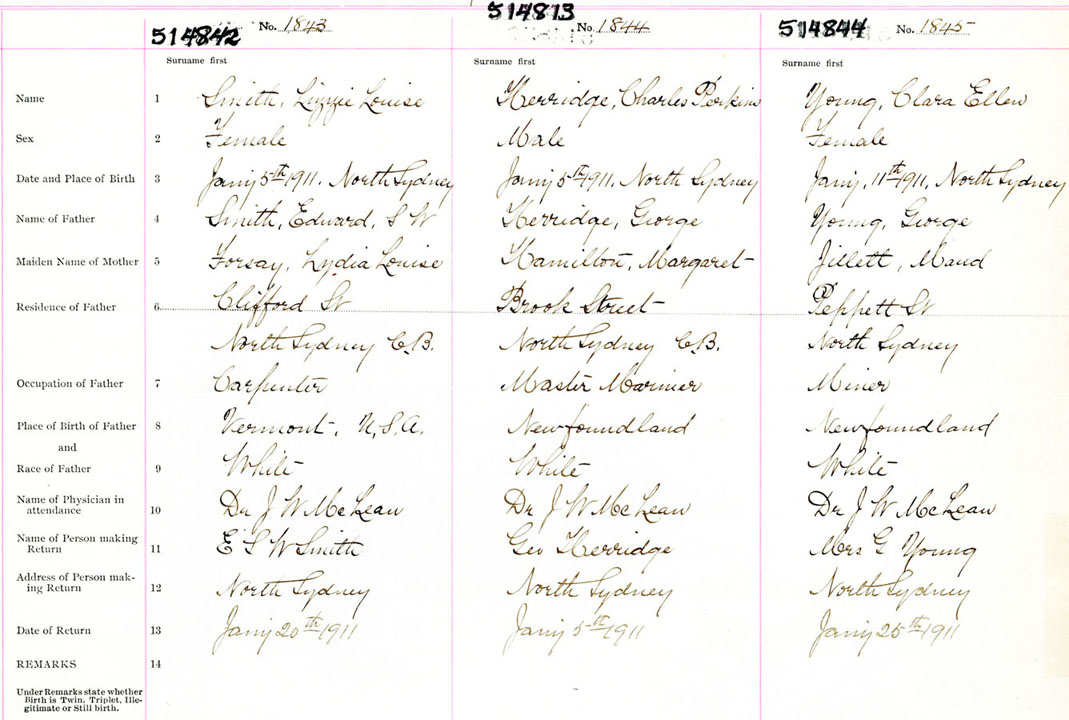 514842 No. 1843 514813 No. 1844 514844 No. 1845
Surname first Surname first Surname first
Name 1 Smith, Lizzie Louise Kerridge, Charles Perkins Young, Clara Ellen
Sex 2 Female Male Female
Date and Place of Birth 3 Jany 5th 1911. North Sydney Jany 5th 1911. North Sydney Jany, 11th 1911, North Sydney
Name of Father 4 Smith, Edward, S W Kerridge, George Young, George
Maiden Name of Mother 5 Forsay, Lydia Louise Hamilton, Margaret Jillett, Maud
Residence of Father 6 Clifford St Brook Street Peppett St
North Sydney C.B. North Sydney C.B. North Sydney
Occupation of Father 7 Carpenter Master Mariner Miner
Place of Birth of Father 8 Vermont, U.S.A. Newfoundland Newfoundland
and
Race of Father 9 White White White
Name of Physician in
attendance 10 Dr J W McLean Dr J W McLean Dr J W McLean
Name of Person making
Return 11 E S W Smith Geo Kerridge Mrs G Young
Address of Person mak-
ing Return 12 North Sydney North Sydney North Sydney
Date of Return 13 Jany 20th 1911 Jany 5th 1911 Jany 25th 1911
REMARKS 14
Under Remarks state whether
Birth is Twin, Triplet, Ille-
gitimate or Still birth.